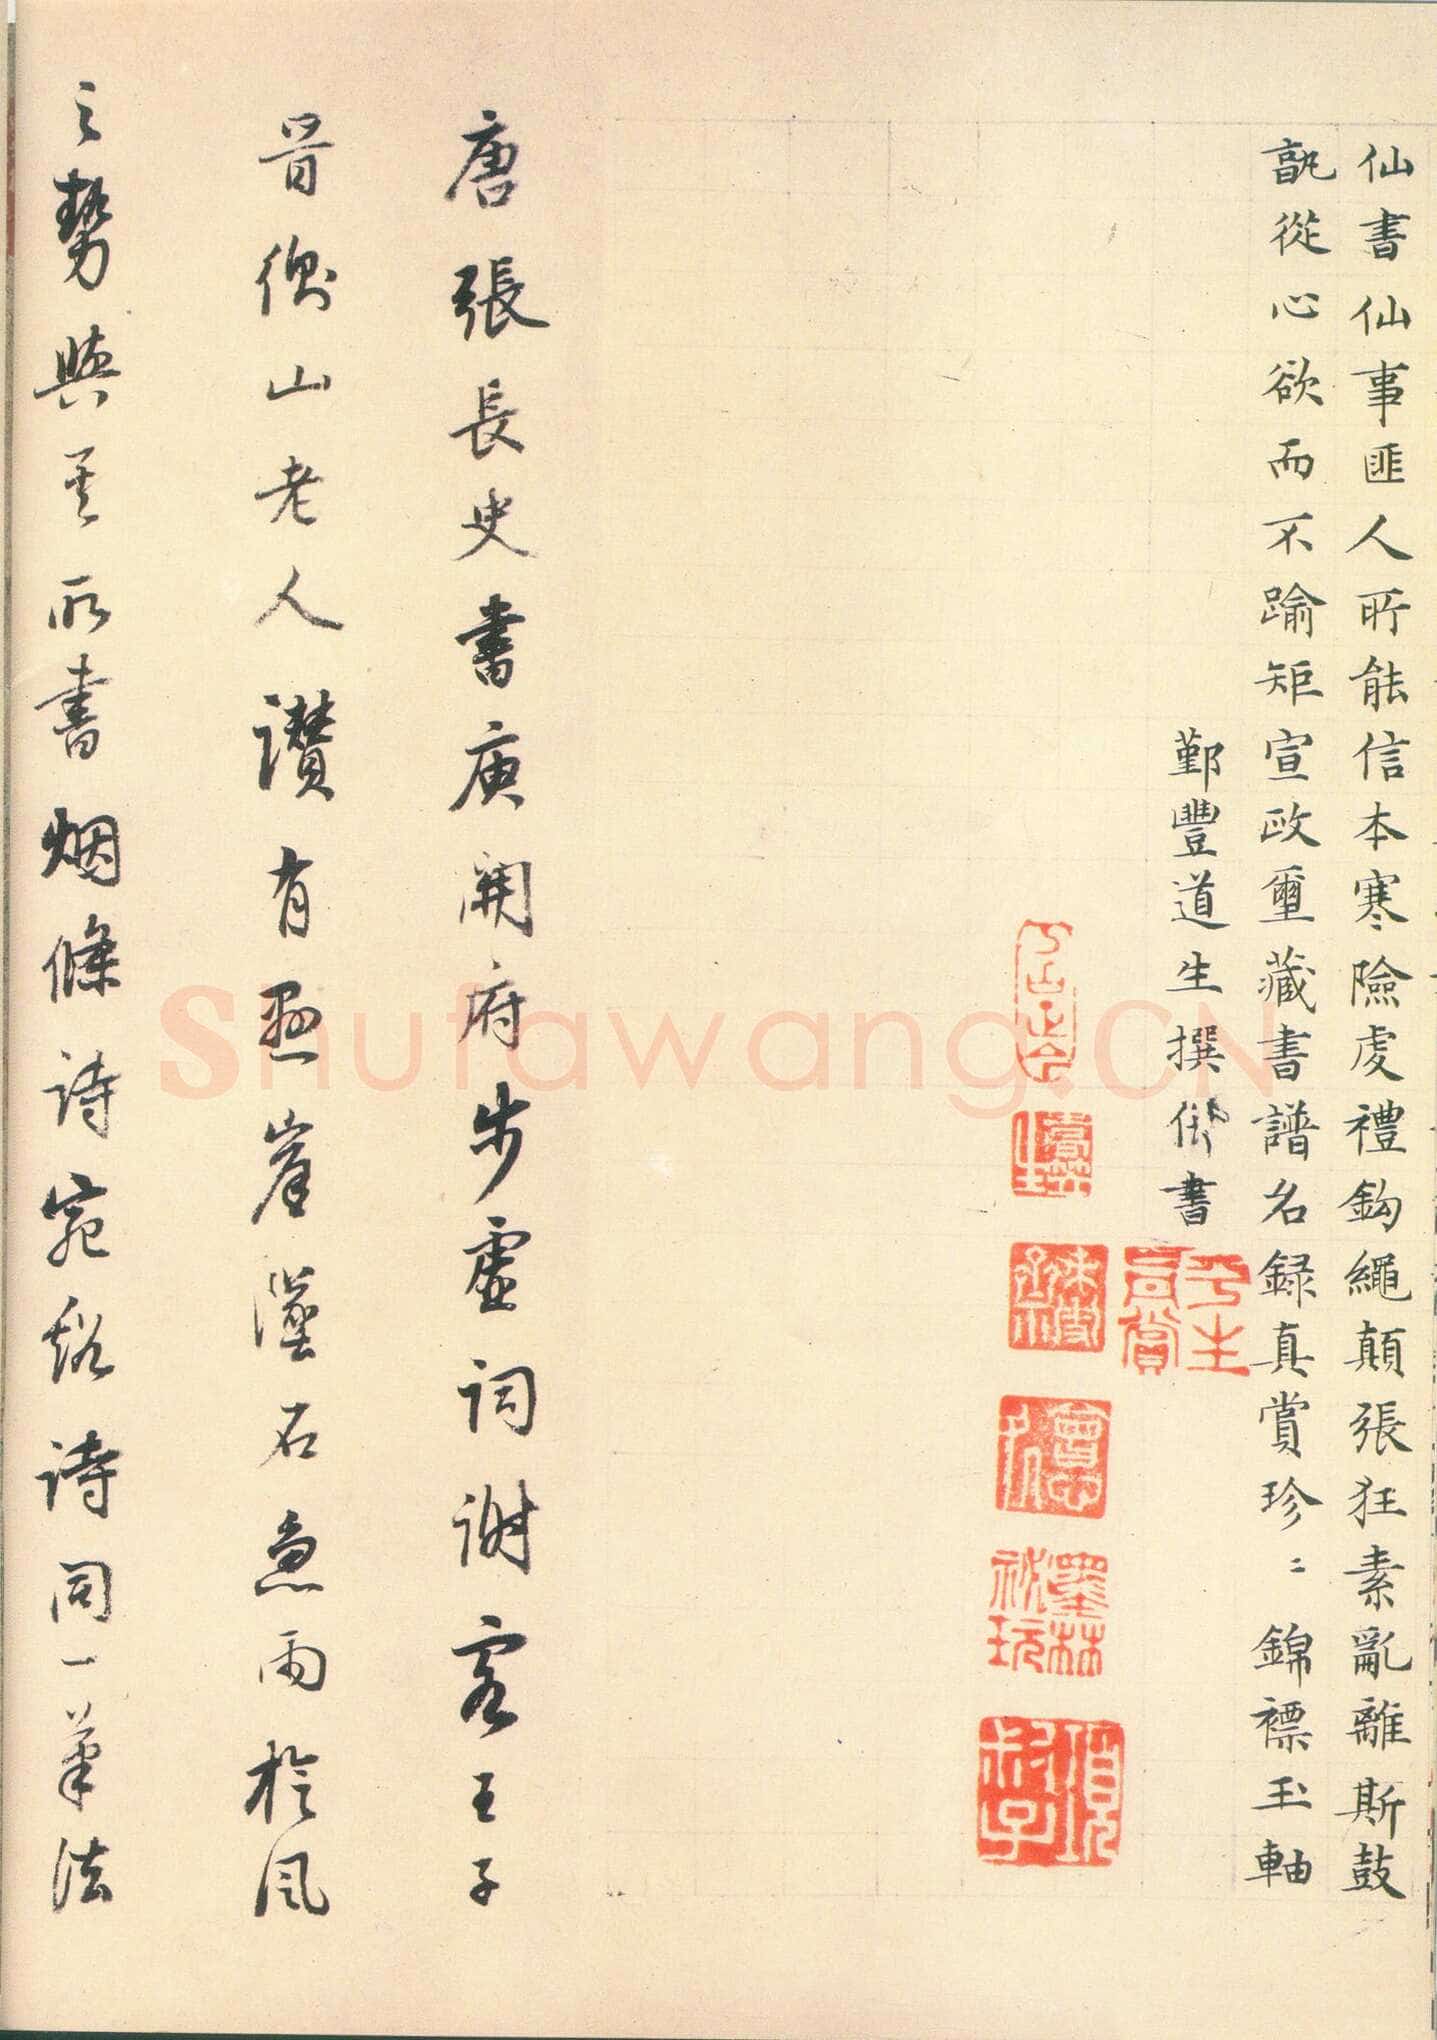 仙書仙事匪人所能信本寒險虔禮鈎繩顛張狂素亂離斯鼓
孰從心欲而不踰矩宣政璽藏書譜名録真賞珍〻錦褾玉軸
鄞豐道生撰併書
平生真賞
項叔子
唐張長史書庾開府步虛詞謝客王子
晉衡山老人讚有懸崖墜石急雨旋風
之勢與其所書烟條詩宛谿詩同一筆法
Shufawang.CN